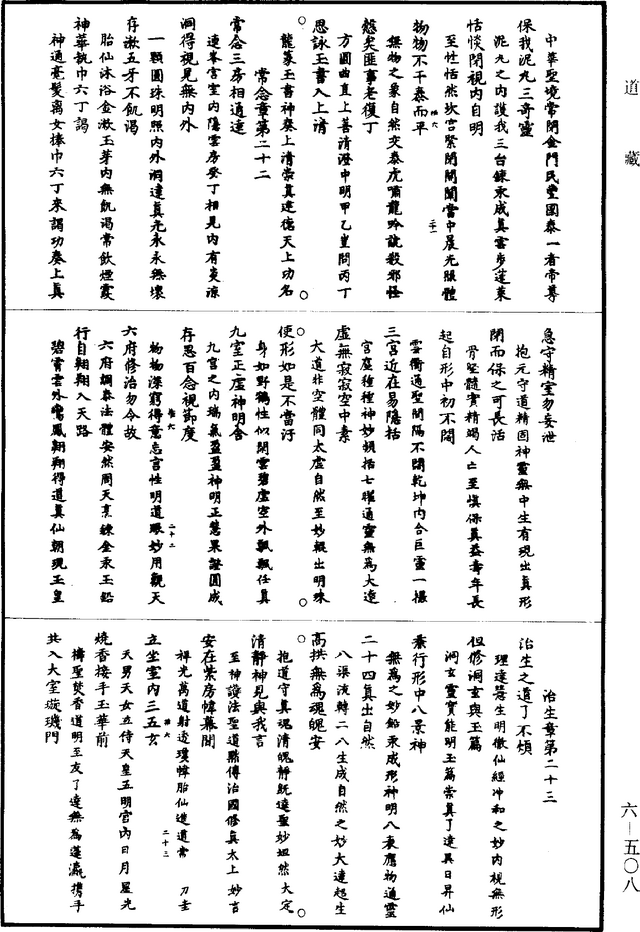 道藏
中華聖境常閉金門民豐國泰一者帝尊
保我泥丸三奇靈
泥丸之內護我三台鍊汞成真雲步蓬萊
恬惔閉視內自明
至性恬然坎宮緊閉閉闔當中晨光照體
物物不干泰而平
無物之象自然交泰虎嘯龍吟誅殺邪怪
慤矣匪事老復丁
方圓曲直上善清澄中明甲乙豈問丙丁
思詠玉書入上清
龍篆玉書神奏上清崇真達德天上功名
常念章第二十二
常念三房相通達
連峯宮室內隱雲房癸丁相見內有炎凉
洞得視見無內外
一顆圓珠明照內外洞達真光永永無壞
存漱五牙不飢渴
胎仙沐浴金漱玉芽內無飢渴常飲煙霞
神華執巾六丁謁
神通毫髮离女捧巾六丁來謁功奏上真
急守精室勿妄泄
抱元守道精固神靈無中生有現出真形
閉而保之可長活
骨堅髓實精竭人亡至慎保真益壽年長
起自形中初不闊
雲衢通聖間隔不闊乾坤內合巨靈一攝
三宮近在易隱括
宮庭種種神妙頓括七曜通靈無為大達
虛無寂寂空中素
大道非空體同太虛自然至妙輥出明珠
使形如是不當汙
身如野鶴性似閑雲碧虛空外飄飄任真
九室正虛神明舍
九宮之內瑞氣盈盈神明正慧果證圓成
存思百念視節度
物物深窮得意忘言性明道眼妙用觀天
六府修治勿令故
六府調泰法體安然周天烹鍊金汞玉鉛
行自翱翔入天路
碧霄雲外鸞鳳翱翔得道真仙朝現玉皇
治生章第二十三
治生之道了不煩
理達醫生明徹仙經冲和之妙內視無形
但修洞玄與玉篇
洞玄靈寶能明玉篇崇真了達異日昇仙
兼行形中八景神
無為之妙鉛汞成形神明八表應物通靈
二十四真出自然
八渠流轉二八生成自然之妙大達超生
高拱無為魂魄安
抱道守真魂清魄靜旣達聖妙坦然大定
清靜神見與我言
至神護法聖道點傳治國修真太上妙言
安在紫房幃幕間
祥光萬道射透瓊幃胎仙遊道常 刀圭
立坐室內三五玄
天男天女立侍天皇五明宮內日月星光
燒香接手玉華前
禱聖焚香道明至友了達無為蓬瀛攜手
共入大室璇璣門
六—五〇八